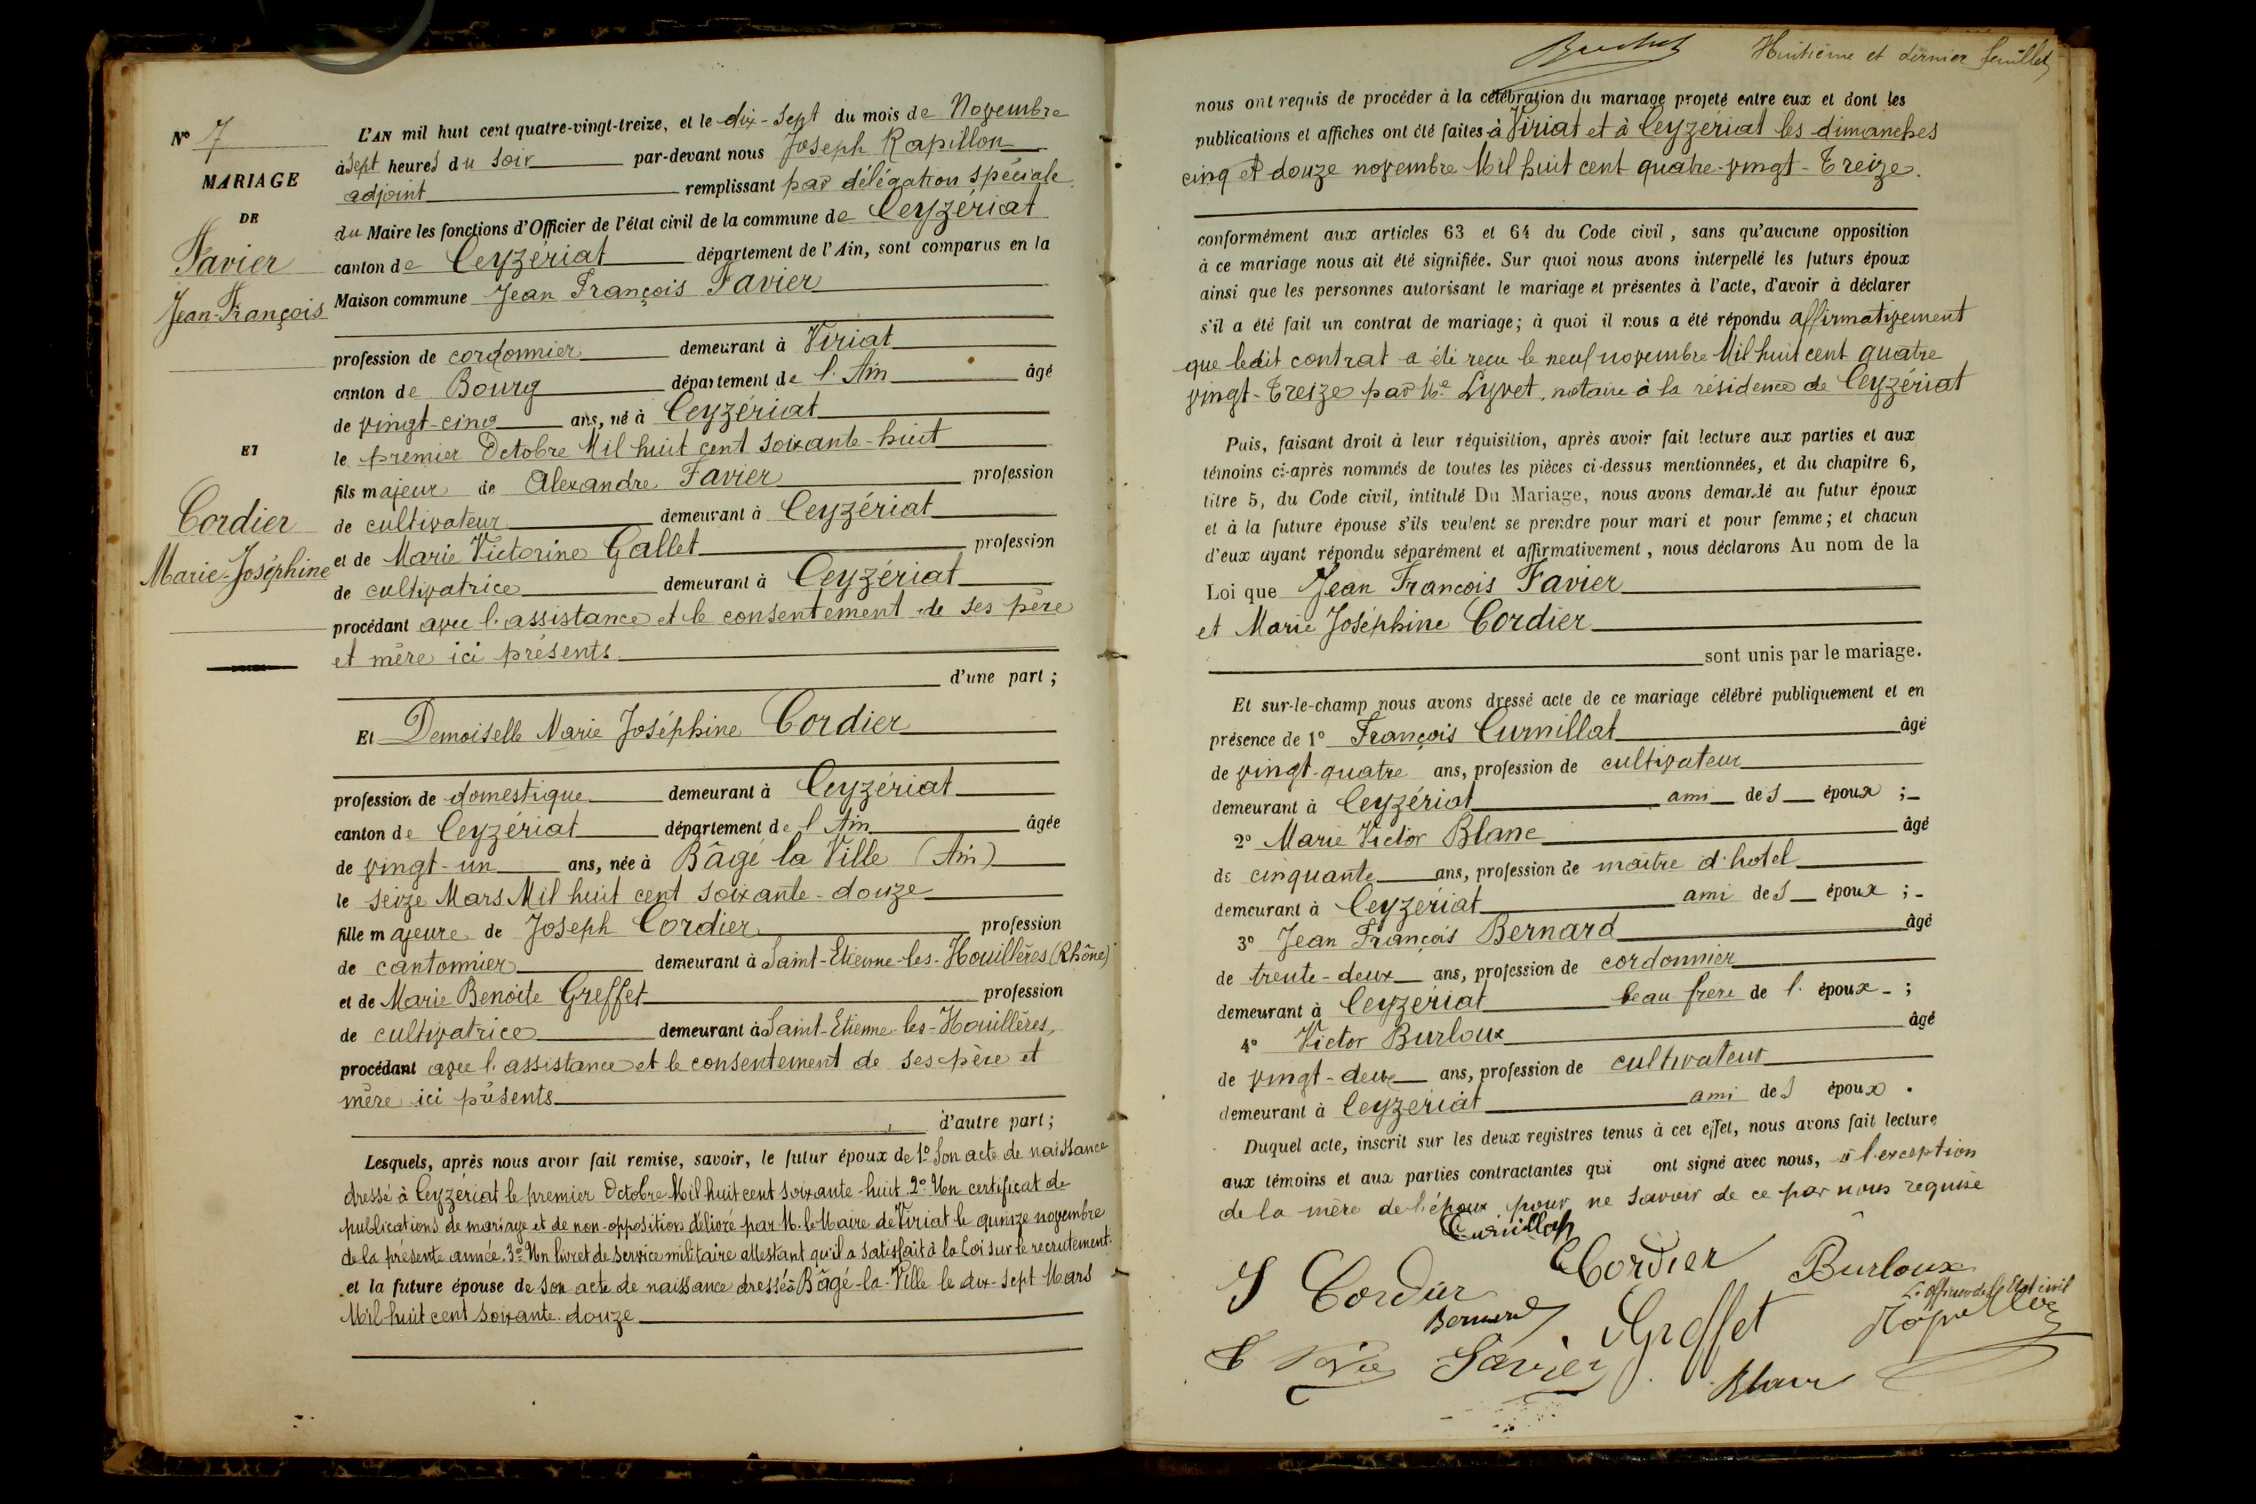 N° 7
MARIAGE
DE
Favier
Jean-François
ET
Cordier
Marie-Joséphine
L'AN mil huit cent quatre-vingt-treize, et le dix-sept du mois de Novembre
à sept heures du soir par-devant nous Joseph Rapillon
adjoint remplissant par délégation spéciale
du Maire les fonctions d'Officier de l'état civil de la commune de Ceyzériat
canton de Ceyzériat département de l'Ain, sont comparus en la
Maison commune Jean François Favier
profession de cordonnier demeurant à Viriat
canton de Bourg département de l'Ain âgé
de vingt-cinq ans, né à Ceyzériat
le premier Octobre Mil huit cent soixante-huit
fils majeur de Alexandre Favier profession
de cultivateur demeurant à Ceyzériat
et de Marie Victorine Gallet profession
de cultivatrice demeurant à Ceyzériat
procédant avec l'assistance et le consentement de ses père
et mère ici présents
d'une part ;
Et Demoiselle Marie Joséphine Cordier
profession de domestique demeurant à Ceyzériat
canton de Ceyzériat département de l'Ain âgée
de vingt-un ans, née à Bâgé la Ville (Ain)
le seize Mars Mil huit cent soixante-douze
fille majeure de Joseph Cordier profession
de cantonnier demeurant à Saint-Etienne-les-Houillères (Rhône)
et de Marie Benoite Greffet profession
de cultivatrice demeurant à Saint-Etienne-les-Houillères,
procédant avec l'assistance et le consentement de ses père et
mère ici présents
d'autre part ;
Lesquels, après nous avoir fait remise, savoir, le futur époux de 1° Son acte de naissance
dressé à Ceyzériat le premier Octobre Mil huit cent soixante-huit. 2° Un certificat de
publications de mariage et de non-opposition délivré par M. le Maire de Viriat le quinze novembre
de la présente année. 3° Un livret de service militaire attestant qu'il a satisfait à la Loi sur le recrutement.
et la future épouse de son acte de naissance dressé à Bâgé-la-Ville le dix-sept Mars
Mil huit cent soixante-douze
Huitième et dernier feuillet
nous ont requis de procéder à la célébration du mariage projeté entre eux et dont les
publications et affiches ont été faites à Viriat et à Ceyzériat les dimanches
cinq et douze novembre Mil huit cent quatre-vingt-Treize.
conformément aux articles 63 et 64 du Code civil, sans qu'aucune opposition
à ce mariage nous ait été signifiée. Sur quoi nous avons interpellé les futurs époux
ainsi que les personnes autorisant le mariage et présentes à l'acte, d'avoir à déclarer
s'il a été fait un contrat de mariage ; à quoi il nous a été répondu affirmativement
que ledit contrat a été reçu le neuf novembre Mil huit cent quatre
vingt-Treize par Me Lyvet, notaire à la résidence de Ceyzériat
Puis, faisant droit à leur réquisition, après avoir fait lecture aux parties et aux
témoins ci-après nommés de toutes les pièces ci-dessus mentionnées, et du chapitre 6,
titre 5, du Code civil, intitulé Du Mariage, nous avons demandé au futur époux
et à la future épouse s'ils veulent se prendre pour mari et pour femme ; et chacun
d'eux ayant répondu séparément et affirmativement, nous déclarons Au nom de la
Loi que Jean François Favier
et Marie Joséphine Cordier
sont unis par le mariage.
Et sur-le-champ nous avons dressé acte de ce mariage célébré publiquement et en
présence de 1° François Curnillat âgé
de vingt-quatre ans, profession de cultivateur
demeurant à Ceyzériat ami des époux ;
2° Marie Victor Blanc âgé
de cinquante ans, profession de maître d'hotel
demeurant à Ceyzériat ami des époux ;
3° Jean François Bernard âgé
de trente-deux ans, profession de cordonnier
demeurant à Ceyzériat beau frère de l'époux ;
4° Victor Burloux âgé
de vingt-deux ans, profession de cultivateur
demeurant à Ceyzériat ami des époux.
Duquel acte, inscrit sur les deux registres tenus à cet effet, nous avons fait lecture
aux témoins et aux parties contractantes qui ont signé avec nous, à l'exception
de la mère de l'époux pour ne savoir de ce par nous requise
Curnillat
J Cordier Cordier Burloux
L'officier de l'Etat civil
Bernard Greffet Rapillon
Favier
Blanc